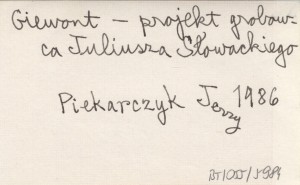 Giewont – projekt grobow-
ca Juliusza Słowackiego
Piekarczyk Jerzy 1986